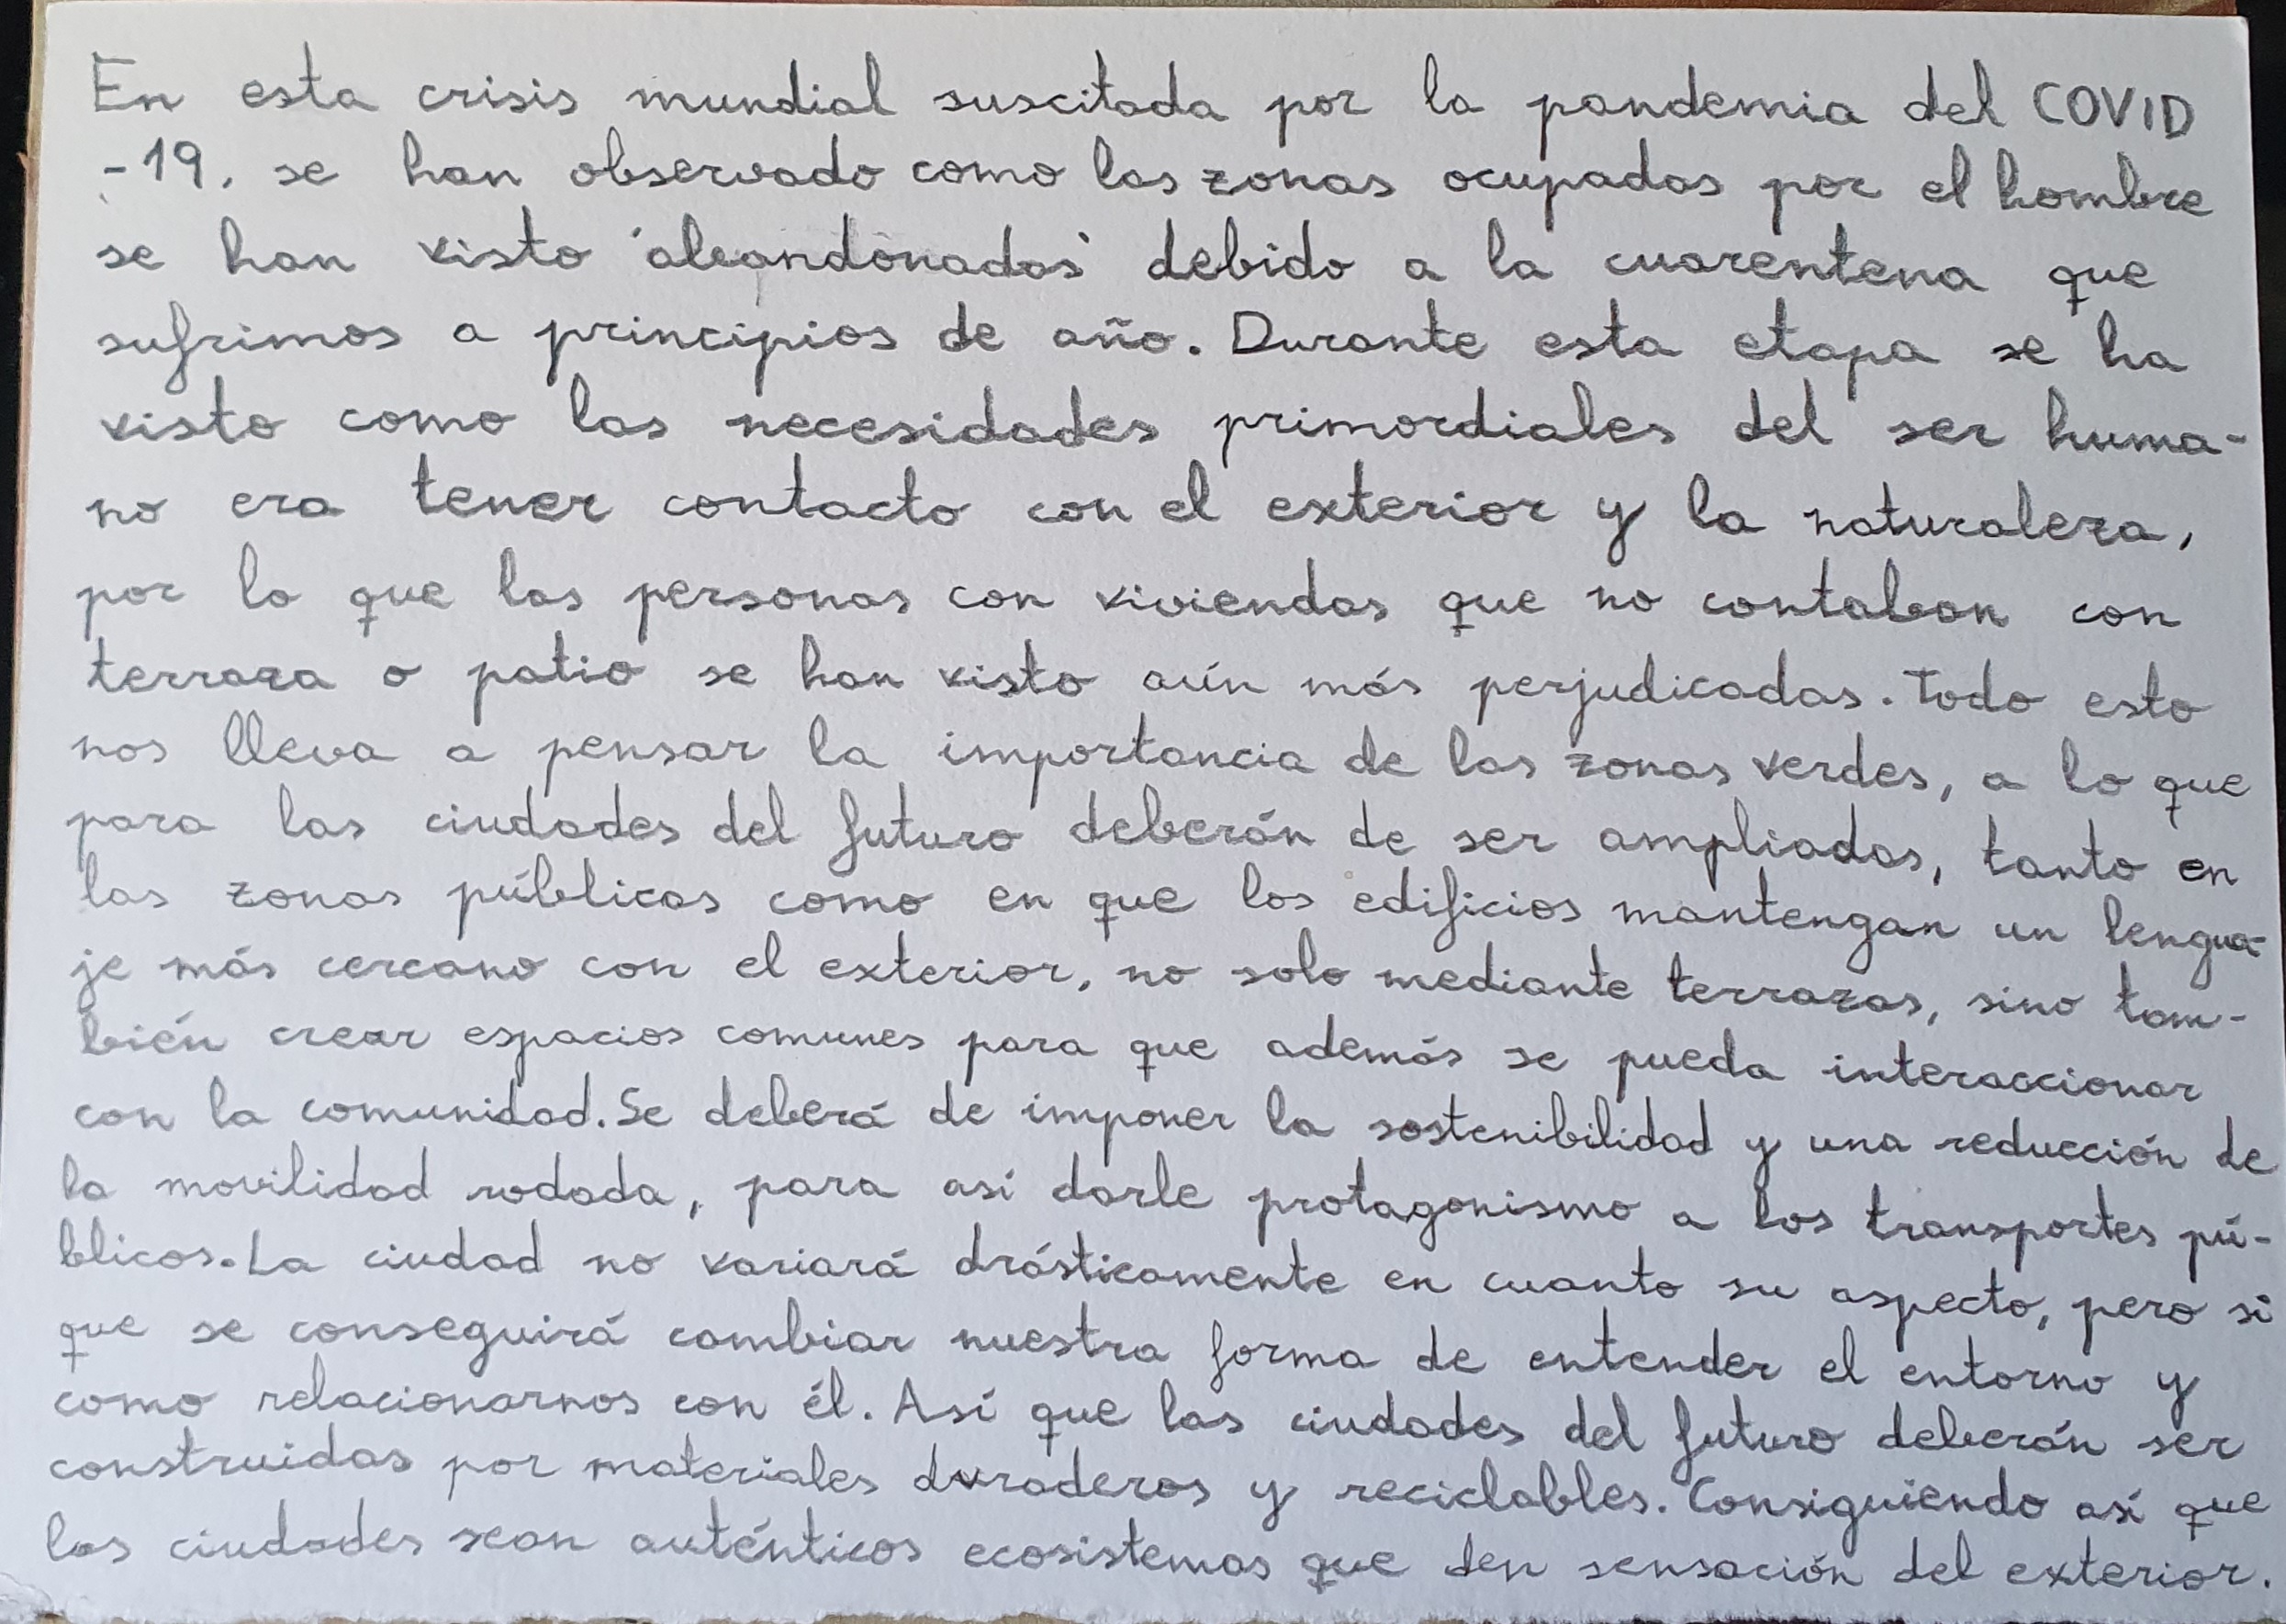 En esta crisis mundial suscitada por la pandemia del COVID
-19, se han observado como las zonas ocupadas por el hombre
se han visto 'abandonadas' debido a la cuarentena que
sufrimos a principios de año. Durante esta etapa se ha
visto como las necesidades primordiales del ser huma-
no era tener contacto con el exterior y la naturaleza,
por lo que las personas con viviendas que no contaban con
terraza o patio se han visto aún más perjudicadas. Todo esto
nos lleva a pensar la importancia de las zonas verdes, a lo que
para las ciudades del futuro deberán de ser ampliadas, tanto en
las zonas públicas como en que los edificios mantengan un lengua-
je más cercano con el exterior, no solo mediante terrazas, sino tam-
bién crear espacios comunes para que además se pueda interaccionar
con la comunidad. Se deberá de imponer la sostenibilidad y una reducción de
la movilidad rodada, para así darle protagonismo a los transportes pú-
blicos. La ciudad no variará drásticamente en cuanto su aspecto, pero si
que se conseguirá cambiar nuestra forma de entender el entorno y
como relacionarnos con él. Así que las ciudades del futuro deberán ser
construidas por materiales duraderos y reciclables. Consiguiendo así que
las ciudades sean auténticos ecosistemas que den sensación del exterior.